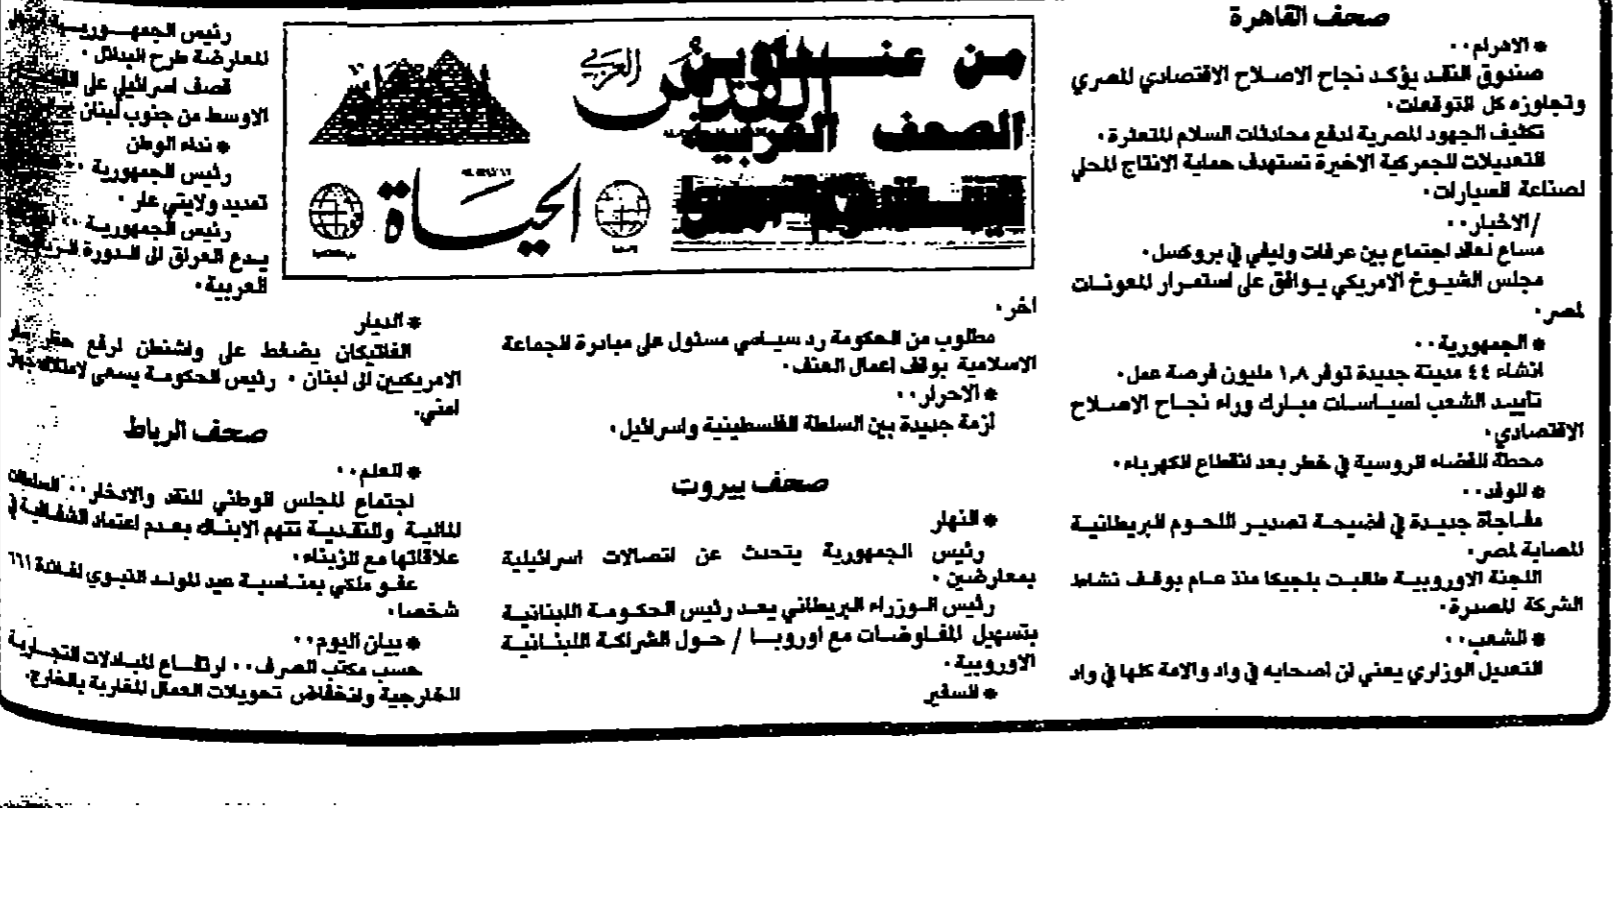 صحف القاهرة
* الاهرام ..
صندوق النقد يؤكد نجاح الاصلاح الاقتصادي المصري
وتجاوزه كل التوقعات.
تكثيف الجهود المصرية لدفع محادثات السلام المتعثرة.
التعديلات الجمركية الاخيرة تستهدف حماية الانتاج المحلي
لصناعة السيارات.
/الاخبار ..
مساع لعقد اجتماع بين عرفات وليفي في بروكسل.
مجلس الشيوخ الامريكي يوافق على استمرار المعونات
لمصر.
* الجمهورية ..
انشاء ٤٤ مدينة جديدة توفر ١,٨ مليون فرصة عمل.
تأييد الشعب لسياسات مبارك وراء نجاح الاصلاح
الاقتصادي.
محطة الفضاء الروسية في خطر بعد انقطاع الكهرباء.
* الوفد ..
مفاجأة جديدة في فضيحة تصدير اللحوم البريطانية
المصابة لمصر.
اللجنة الاوروبية طالبت بلجيكا منذ عام بوقف نشاط
الشركة المصدرة.
* الشعب ..
التعديل الوزاري يعني ان اصحابه في واد والامة كلها في واد
من عناوين
الصحف العربية
القدس العربي
الحياة
اخر.
مطلوب من الحكومة رد سياسي مسئول على مبادرة الجماعة
الاسلامية بوقف اعمال العنف.
* الاحرار ..
أزمة جديدة بين السلطة الفلسطينية واسرائيل.
صحف بيروت
* النهار
رئيس الجمهورية يتحدث عن اتصالات اسرائيلية
بمعارضين.
رئيس الوزراء البريطاني يعد رئيس الحكومة اللبنانية
بتسهيل المفاوضات مع اوروبا / حول الشراكة اللبنانية
الاوروبية.
* السفير
رئيس الجمهورية
المعارضة طرح البدائل.
قصف اسرائيلي على
الاوسط من جنوب لبنان
* نداء الوطن
رئيس الجمهورية ..
تمديد ولايتي
رئيس الجمهورية ..
يدع العراق الى الدورة
العربية.
* الديار
الفاتيكان يضغط على واشنطن لرفع حظر سفر
الامريكيين الى لبنان . رئيس الحكومة يسعى لامتلاك جهاز
امني.
صحف الرباط
* العلم ..
اجتماع المجلس الوطني للنقد والادخار .. السلطات
المالية والنقدية تتهم الابناك بعدم اعتماد الشفافية في
علاقاتها مع الزبناء.
عفو ملكي بمناسبة عيد المولد النبوي لفائدة ٦٦١
شخصا.
* بيان اليوم ..
حسب مكتب الصرف .. ارتفاع المبادلات التجارية
الخارجية وانخفاض تحويلات العمال المغاربة بالخارج.